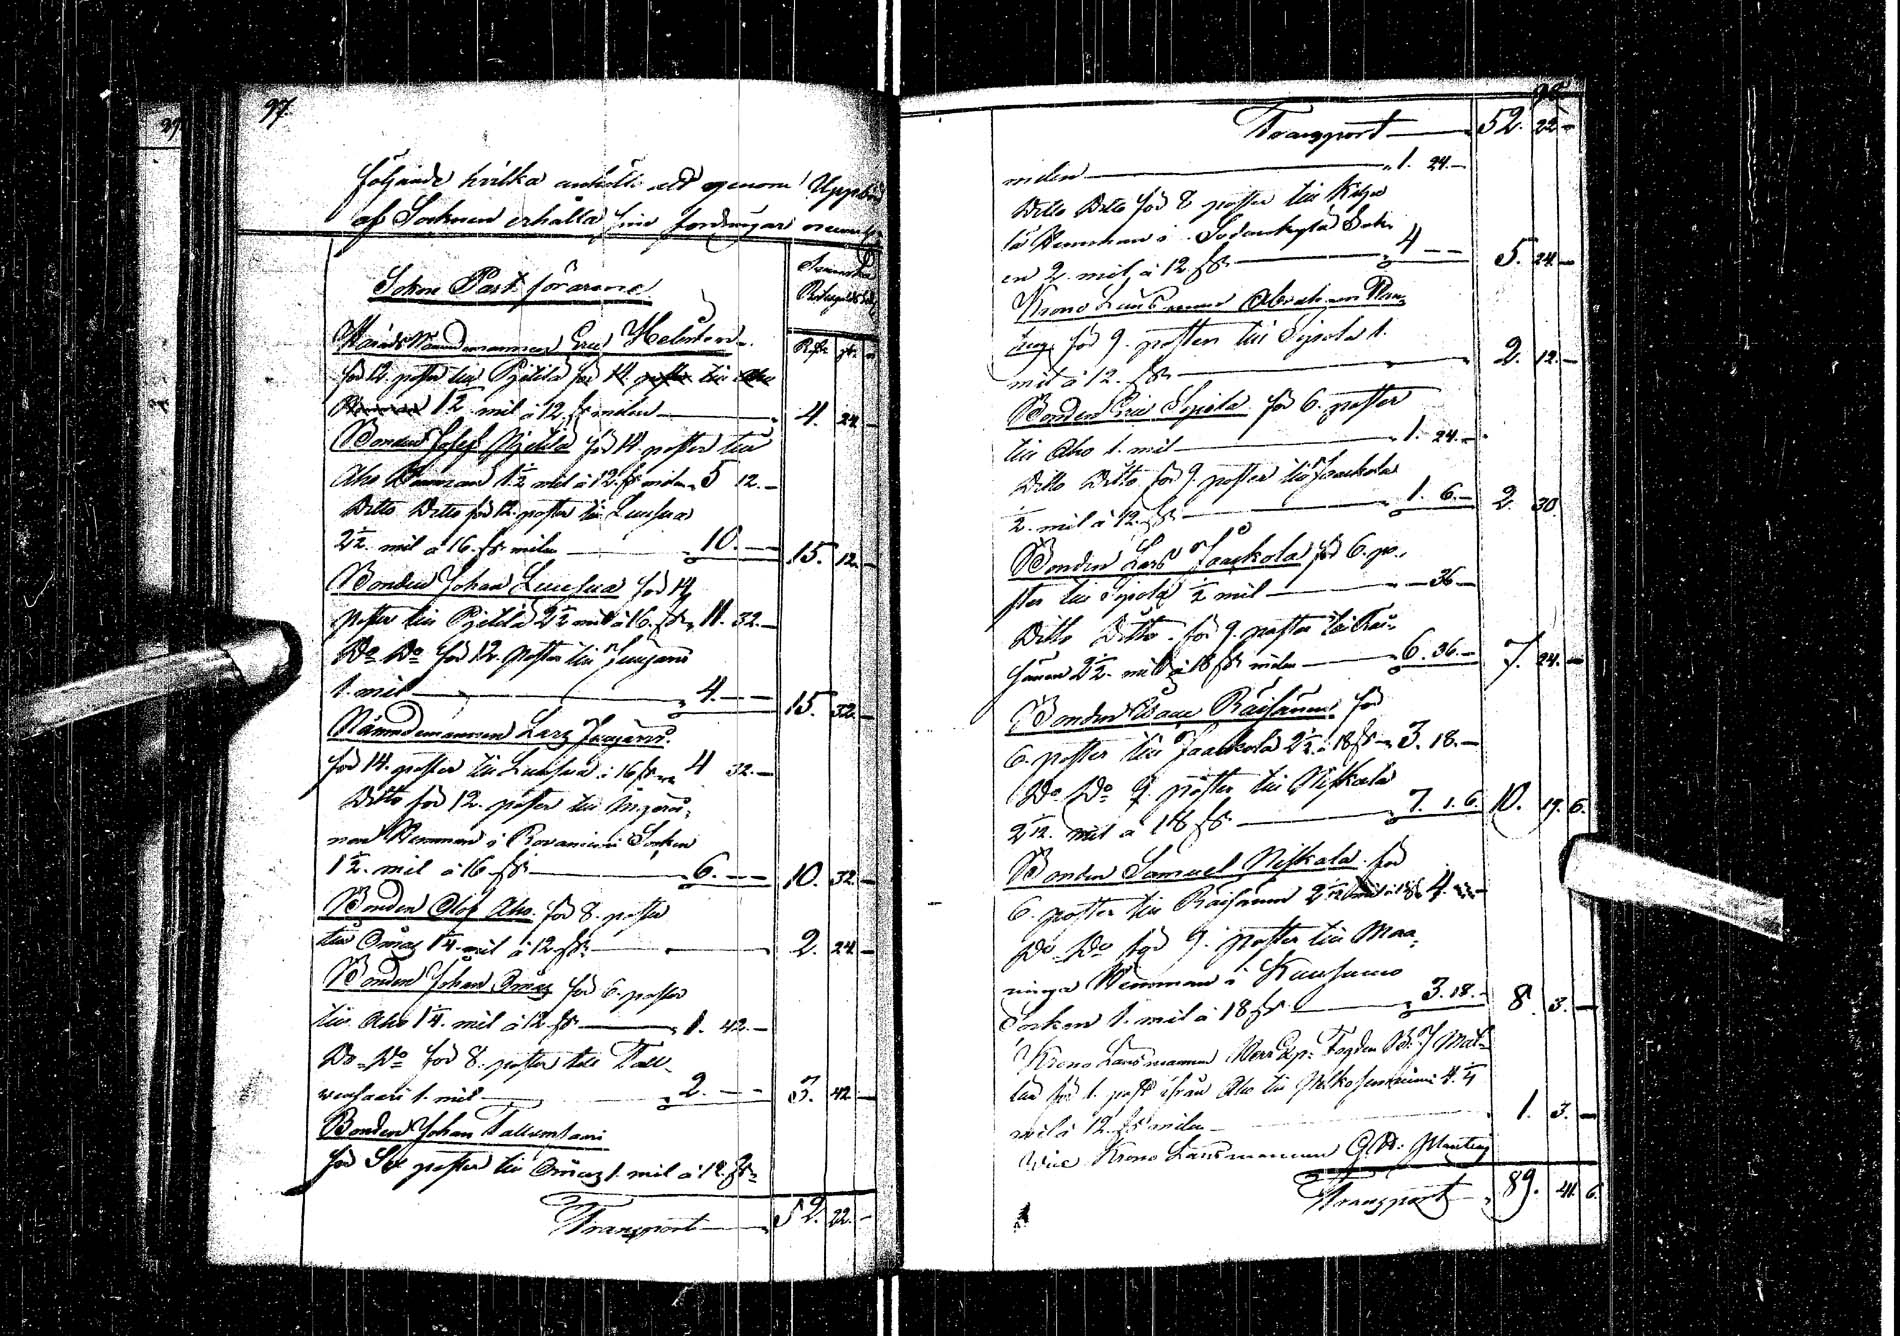 97.
följande hvilka anhölle att genom Uppbörd
af Socknen erhålla sine fordringar nemligen
Sokne Post förarne
Svenska
Riksgälds
Rdr sk.
Härads Nämndemannen Eric Helisten
för 12. poster till Pejtilä för 14. poster till Aho
12 mil à 12. sk milen 4. 24. —
Bonden Josef Pejtilä för 14. poster till
Aho Hemman 1½ mil à 12. sk milen 5 12. —
Ditto Ditto för 12. poster till Luusua
2½. mil à 16. sk milen 10. — — 15. 12. —
Bonden Johan Luusua för 14
poster till Pejtilä 2½ mil à 16. sk 11. 32. —
Do Do för 12. poster till Juujärvi
1. mil 4. — — 15. 32. —
Nämndemannen Lars Juujärvi
för 14. poster till Luusua à 16 sk 4 32. —
Ditto för 12. poster till
nen Hemman i Rovaniemi Socken
1½. mil à 16 sk 6. — — 10. 32. —
Bonden Olof Aho för 8. poster
till Önäs 1¼. mil à 12 sk 2. 24. —
Bonden Johan Önäs för 6. poster
till Aho 1¼. mil à 12 sk 1. 42. —
Do Do för 8. poster till Tall-
vensaari 1. mil 2. — — 3. 42. —
Bonden Johan Tallvensaari
för Sex poster till Önäs 1. mil à 12. sk
Transport 52. 22. —
98
Transport 52. 22 —
milen 1. 24. —
Ditto Ditto för 8 poster till
lä Hemman i Sodankylä Sok-
en 2. mil à 12. sk 4 — — 5. 24. —
Krono Länsmannen Abraham Plan-
ting för 9. poster till Sipola 1.
mil à 12. sk 2. 12. —
Bonden Eric Sipola för 6. poster
till Aho 1. mil 1. 24. —
Ditto Ditto för 9. poster till Jaakola
½. mil à 12. sk 1. 6. — 2. 30.
Bonden Lars Jaakola för 6. po-
ster till Sipola ½ mil — 36 —
Ditto Ditto för 9. poster till Räi-
sänen 2½. mil à 18 sk milen 6. 36. — 7. 24. —
Bonden Isaac Räisänen för
6. poster till Jaakola 2½. à 18 sk 3. 18. —
Do Do 9. poster till Niskala
2 1/12. mil à 18 sk 7. 1. 6. 10. 19. 6.
Bonden Samuel Niskala för
6. poster till Räisänen 2 1/12 mil à 18 sk 4.
Do Do för 9. poster till Maa-
ninga Hemman i Kuusamo
Socken 1. mil à 18 sk 3. 18. — 8. 3. —
Krono Länsmannen Herr Exp: Fogden
för 1. post ifrån Aho till 4. ¼
mil à 12. sk milen 1. 3. —
Vice Krono Länsmannen Planting
Transport 89. 41. 6.